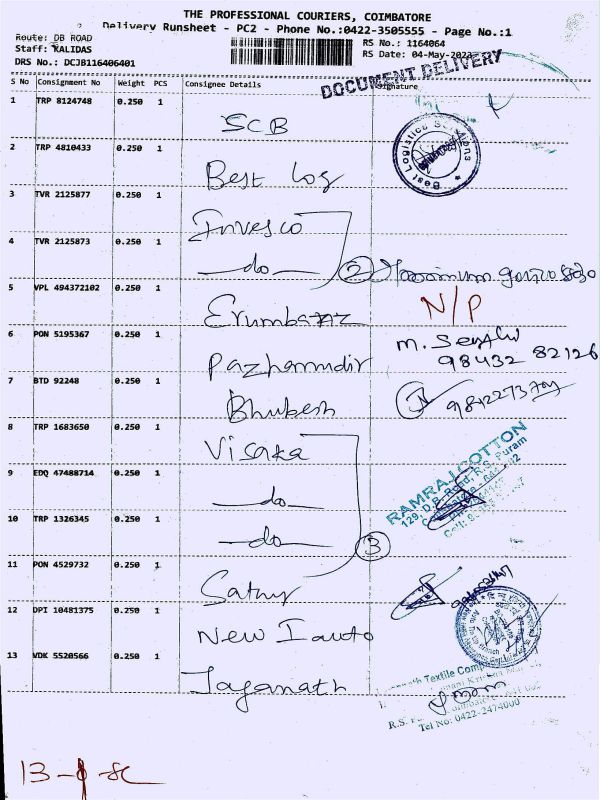 THE PROFESSIONAL COURIERS, COIMBATORE
Delivery Runsheet - PC2 - Phone No.:0422-3505555 - Page No.:1
Route: DB ROAD
Staff: KALIDAS
DRS No.: DCJB116406401
RS No.: 1164064
RS Date: 04-May-2023
DOCUMENT DELIVERY
S No Consignment No Weight PCS Consignee Details Signature
1 TRP 8124748 0.250 1 SCB
2 TRP 4810433 0.250 1 Best Log
Best Logistics Solutions
3 TVR 2125877 0.250 1 Invesco
4 TVR 2125873 0.250 1 do 2
5 VPL 494372102 0.250 1 N/P
6 PON 5195367 0.250 1 Pazhamudir
98432 82126
7 BTD 92248 0.250 1 Bhubesh
8 TRP 1683650 0.250 1 Visaka
9 EDQ 47488714 0.250 1 do
RAMRAJ COTTON
129, D.B. Road, R.S. Puram
10 TRP 1326345 0.250 1 do 3
11 PON 4529732 0.250 1
12 DPI 10481375 0.250 1 New I auto
13 VDK 5520566 0.250 1 Jaganath
Textile Company
Tel No: 0422-2474000